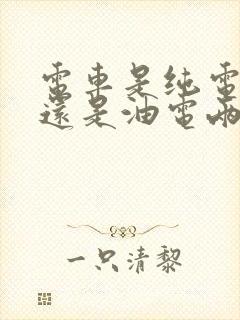 電車是纯電
還是油電兩
一只清黎